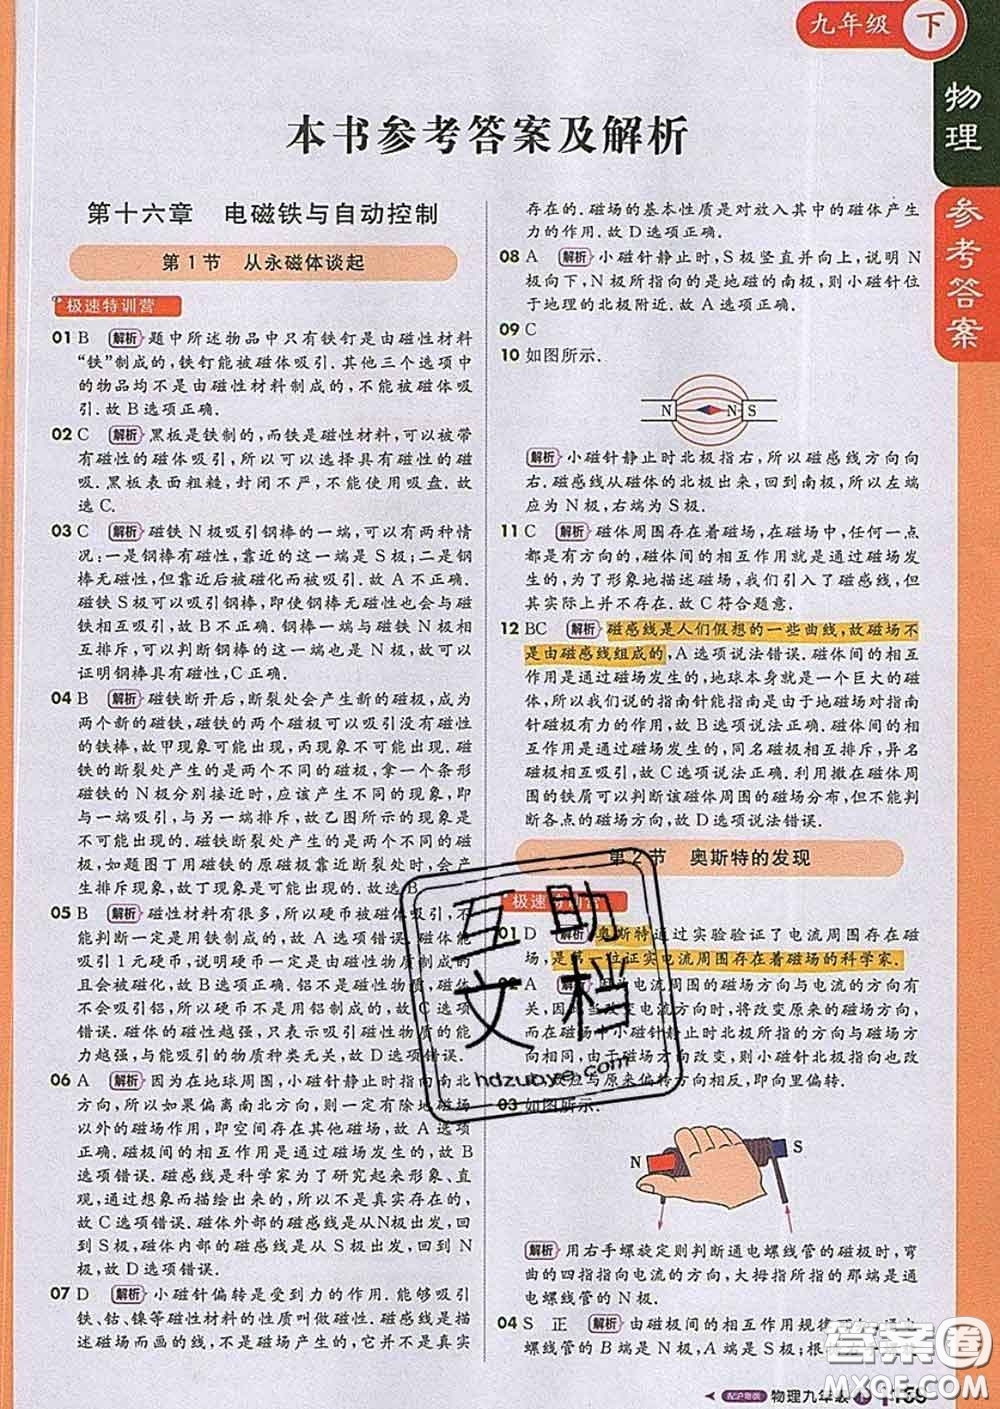 九年级 下
物理
参考答案
本书参考答案及解析
第十六章 电磁铁与自动控制
第1节 从永磁体谈起
极速特训营
01 B 解析 题中所述物品中只有铁钉是由磁性材料
“铁”制成的,铁钉能被磁体吸引.其他三个选项中
的物品均不是由磁性材料制成的,不能被磁体吸
引.故B选项正确.
02 C 解析 黑板是铁制的,而铁是磁性材料,可以被带
有磁性的磁体吸引,所以可以选择具有磁性的磁
吸.黑板表面粗糙,封闭不严,不能使用吸盘.故
选C.
03 C 解析 磁铁N极吸引钢棒的一端,可以有两种情
况:一是钢棒有磁性,靠近的这一端是S极;二是钢
棒无磁性,但靠近后被磁化而被吸引.故A不正确.
磁铁S极可以吸引钢棒,即使钢棒无磁性也会与磁
铁吸引,故B不正确.钢棒一端与磁铁N极相
互排斥,可以判断钢棒的这一端也是N极,故可以
证明钢棒具有磁性,C正确.
04 B 解析 磁铁断开后,断裂处会产生新的磁极,成为
两个新的磁铁,磁铁的两个磁极可以吸引没有磁性
的铁棒,故甲现象可能出现,丙现象不可能出现.磁
铁的断裂处产生的是两个不同的磁极,拿一个条形
磁铁的N极分别接近时,应该产生不同的现象,即
与一端吸引,与另一端排斥,故乙图所示的现象是
不可能出现的.磁铁断裂处产生的是两个不同的磁
极,如题图丁用磁铁的原磁极靠近断裂处时,会产
生排斥现象,故丁现象是可能出现的.故选B.
05 B 解析 磁性材料有很多,所以硬币被磁体吸引,不
能判断一定是用铁制成的,故A选项错误.磁体能
吸引1元硬币,说明硬币一定是由磁性物质制成的
且会被磁化,故B选项正确.磁体不能吸引铝
制品,所以硬币不是用铝制成的,故C选项
错误.磁体的磁性越强,只表示吸引磁性物质的能
力越强,与能吸引的物质种类无关,故D选项错误.
06 A 解析 因为在地球周围,小磁针静止时指向南北
方向,所以如果偏离南北方向,一定是有除地磁场
以外的磁场作用,即空间存在其他磁场,故A选项
正确.磁极间的相互作用是通过磁场发生的,故B
选项错误.磁感线是科学家为了研究起来形象、直
观,通过想象而描绘出来的,所以不是真实存在的,
故C选项错误.磁体外部的磁感线是从N极出发,回
到S极,磁体内部的磁感线是从S极出发,回到N
极,故D选项错误.
07 D 解析 小磁针偏转是受到力的作用.能够吸引
铁、钴、镍等磁性材料的性质叫做磁性.磁感线是描
述磁场而画的线,不是磁场产生的,它并不是真实
存在的.磁场的基本性质是对放入其中的磁体产生
力的作用.故D选项正确.
08 A 解析 小磁针静止时,S极竖直并向上,说明N
极向下,N极所指向的是地磁的南极,则小磁针位
于地理的北极附近.故A选项正确.
09 C
10 如图所示.
N N S
解析 小磁针静止时北极指右,所以磁感线方向向
右.磁感线从磁体的北极出发,回到南极,所以左端
应为N极,右端为S极.
11 C 解析 磁体周围存在着磁场,在磁场中,任何一点
都是有方向的,磁体间的相互作用就是通过磁场发
生的,为了形象地描述磁场,我们引入了磁感线,但
其实际上并不存在.故C符合题意.
12 BC 解析 磁感线是人们假想的一些曲线,故磁场不
是由磁感线组成的,A选项说法错误.磁体间的相互
作用是通过磁场发生的,地球本身就是一个巨大的磁
体,所以我们说的指南针能指南是由于地磁场对指南
针磁极有力的作用,故B选项说法正确.磁体间的相
互作用是通过磁场发生的,同名磁极相互排斥,异名
磁极相互吸引,故C选项说法正确.利用撒在磁体周
围的铁屑可以判断该磁体周围的磁场分布,但不能判
断各点的磁场方向,故D选项说法错误.
第2节 奥斯特的发现
极速特训营
01 D 解析 奥斯特通过实验验证了电流周围存在磁
场,是第一位证实电流周围存在着磁场的科学家.
02 A 解析 因为电流周围磁场方向与电流的方向有
关,因此当改变电流方向时,将改变原来的磁场方向,
而在磁场中小磁针静止时北极所指的方向与磁场方
向相同,由于磁场方向改变,则小磁针北极指向也改
应与原来偏转方向相反,即向里偏转.
03 如图所示.
N S
解析 用右手螺旋定则判断通电螺线管的磁极时,弯
曲的四指指向电流的方向,大拇指所指的那端是通
电螺线管的N极.
04 S 正 解析 由磁极间的相互作用规律
螺线管的B端是N极,A端是S极;根
互助文档
hdzuoye.com
答案圈
配沪粤版 物理九年级 下